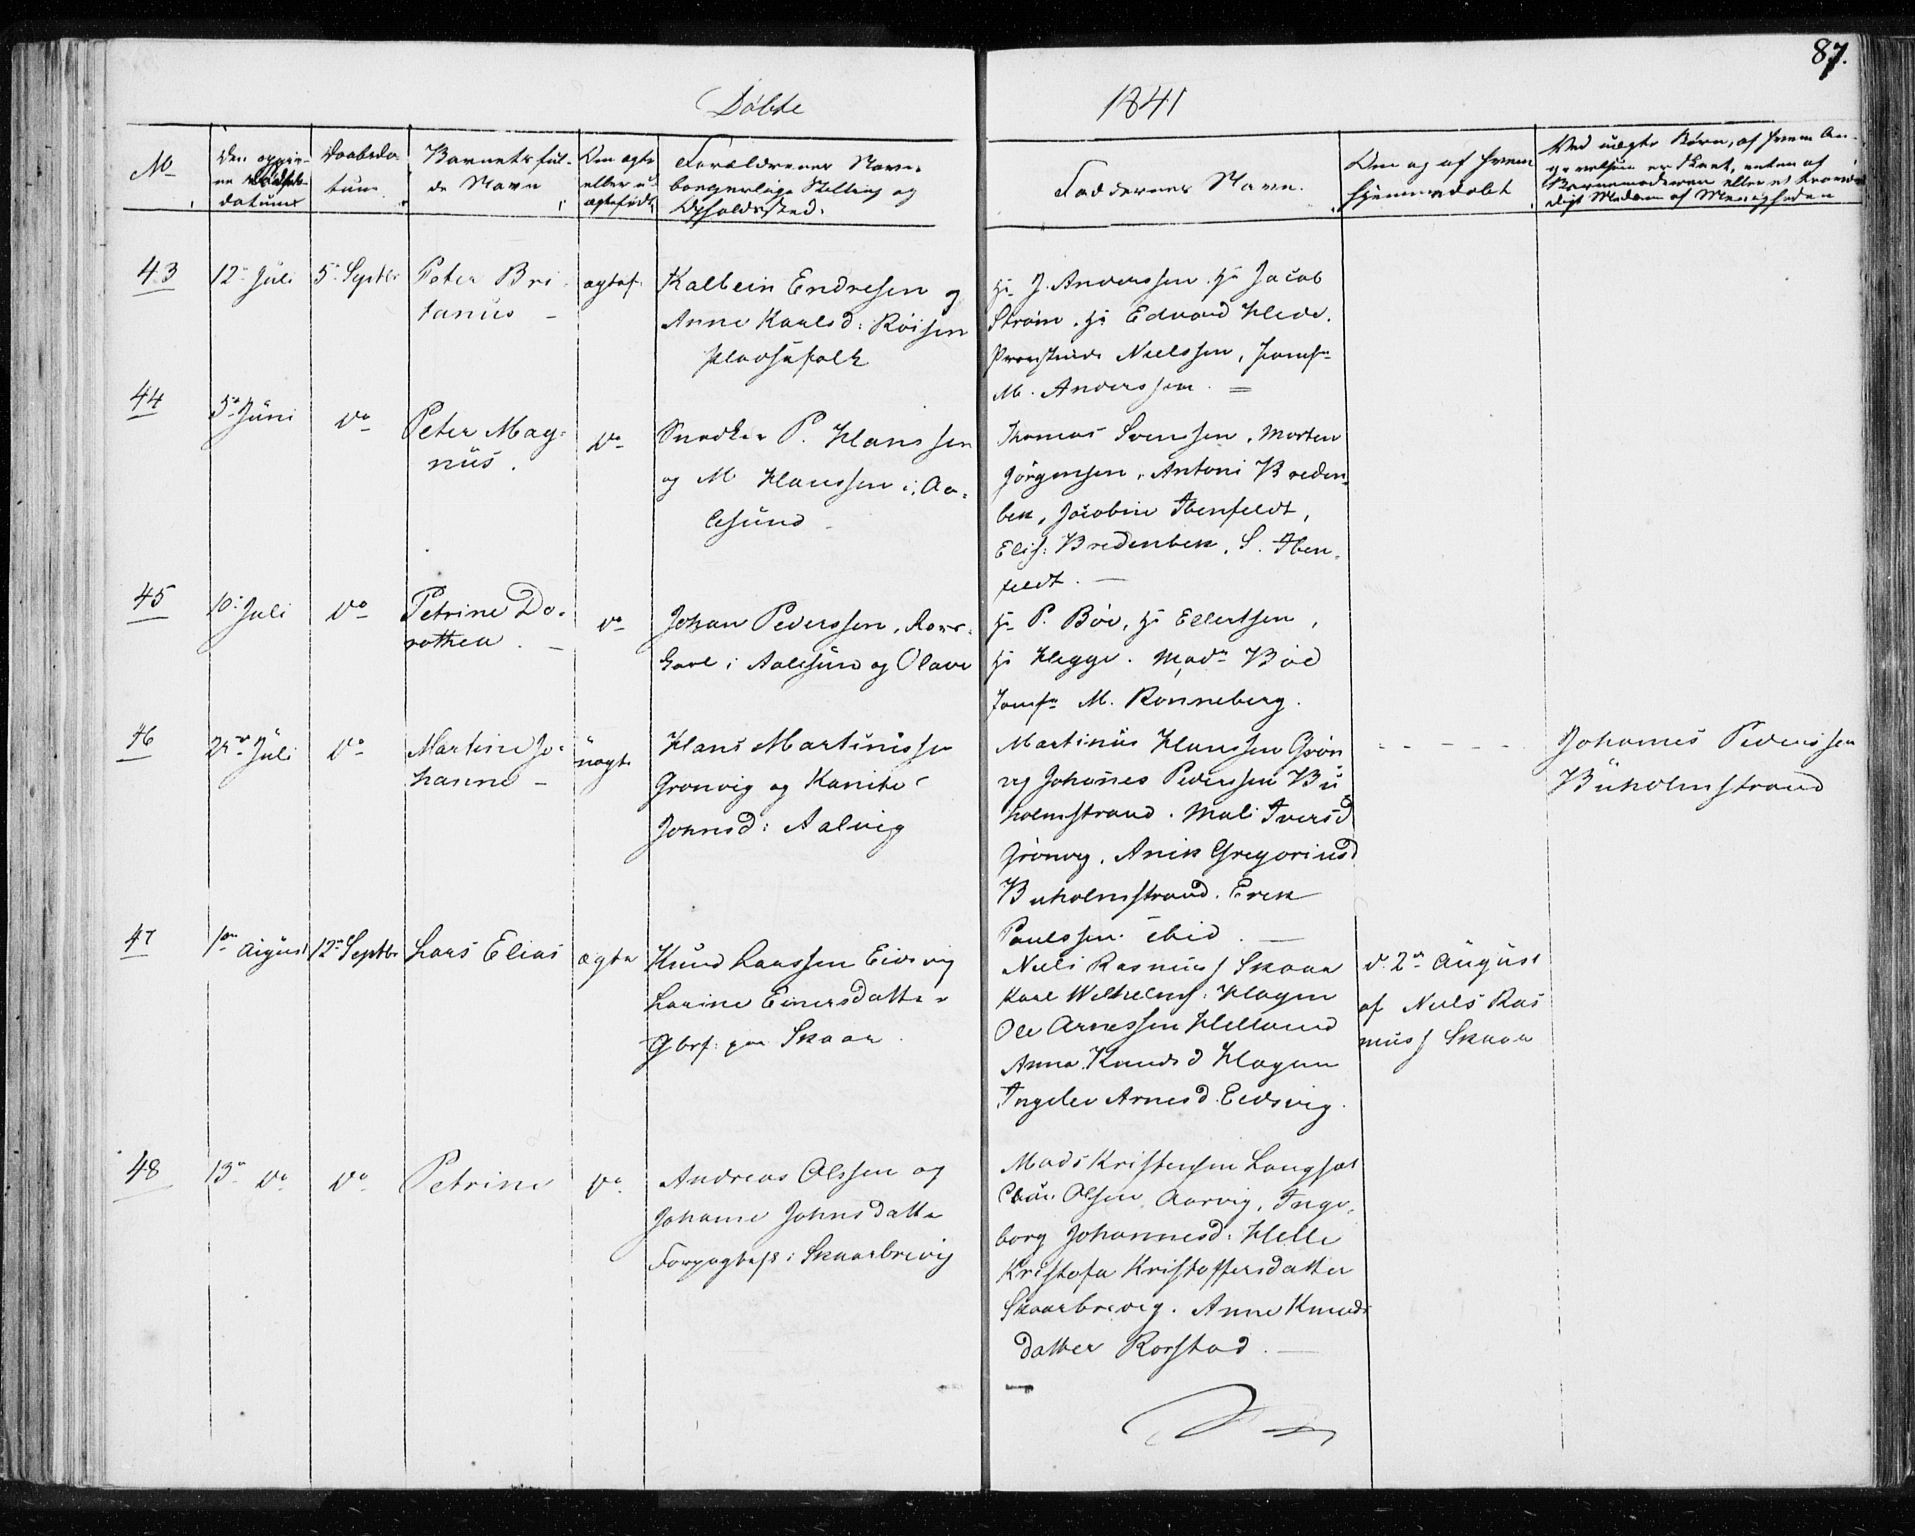 87.
Døbte 1841
No
Den opgiv-
ne Fødsels-
datum
Daabsda-
tum
Barnets ful-
de Navn
Om ægte
eller u-
ægtefødt
Forældrenes Navn,
borgerlige Stilling og
Opholdssted.
Faddernes Navn.
Om og af hvem
hjemmedøbt
Ved uægte Børn, af hvem An-
givelsen er skeet, enten af
Barnemoderen eller et troværdi-
digt Medlem af Menigheden
43
12te Juli
5te Septbr
Peter Bri-
tanus
ægtef.
Kalbein Endresen og
Anne Karlsd: Röisen
Pladsefolk
Hr J. Anderssen. Hr Jacob
Strøm. Hr Edvard Hede.
Provstinde Nielssen, Jomfr
M. Anderssen. =
44
5te Juni
do
Peter Mag-
nus.
do
Snedker P. Hanssen
og M Hanssen i Aa-
lesund
Thomas Svenssen, Morten
Jörgensen, Antoni Breden-
bek, Jacobine Ibenfeldt,
Elis: Bredenbek, S. Iben-
feldt.
45
10de Juli
do
Petrine Do-
rothea.
do
Johan Pederssen, Rors-
karl i Aalesund og Olave
Hr P. Böe, Hr Ellertsen,
Hr Hegge. Madm Böe
Jomfr M. Ronneberg.
46
Juli
do
Martine Jo-
hanne
uægte
Hans Martinussen
Gronvig og Kanike
Johnsd: Aalvig
Martinus Hanssen Grön
vig Johannes Pederssen Bu
holmstrand. Mali Iversd
Grönvig, Anik Gregoriusd
Buholmstrand. Erik
Paulssen ibid.
Johannes Pederssen
Buholmstrand
47
1ste August
12te Septbr
Lars Elias
ægte
Knud Larssen Eidsvig
Larine Einersdatter
Gbrf: paa Skaar.
Niels Rasmuss Skaar
Karl Wilhelms: Hagen
Ole Arnessen Helland
Anna Knudsd Hagen
Ingelev Arnesd. Eidsvig.
d. 2den August
af Niels Ras
muss Skaar
48
13de do
do
Petrine
do
Andreas Olssen og
Johanne Johnsdatter
Forpagtesf: i Skaarbrevig
Mads Kristensen Langsæt
Olsen Aarvig, Inge-
borg Johannesd: Helle
Kristofa Kristoffersdatter
Skaarbrevig. Anne Knuds
datter Rorstad.